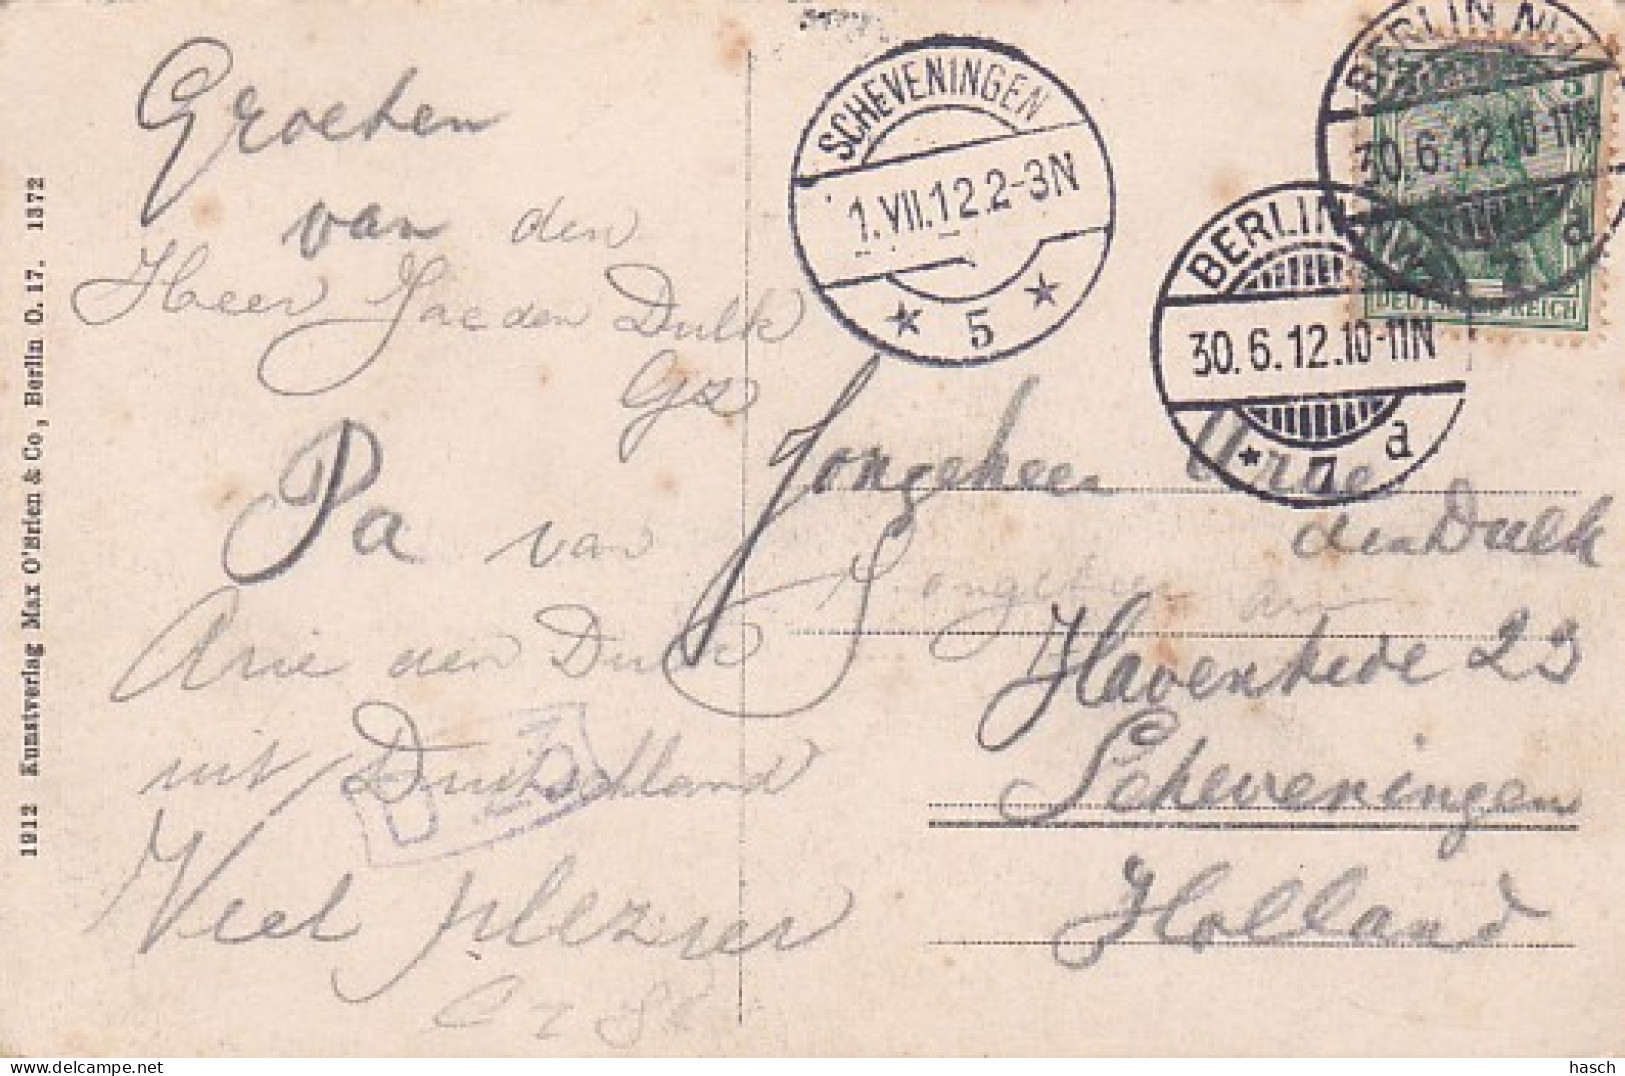 Groeten
van den
Heer Jac den Dulk
Gz
Pa van
Arie den Dulk
uit Duitschland
Viel plezier
1912 Kunstverlag Max O'Brien & Co, Berlin O. 17. 1372
SCHEVENINGEN
1.VII.12.2-3N
* 5 *
BERLIN NW
30.6.12.10-11N
a
BERLIN NW
30.6.12.10-11N
* 7 a
5
DEUTSCHES REICH
Jongeheer Arie
den Dulk
Jongeheer
Havenkade 23
Scheveningen
Holland
hasch